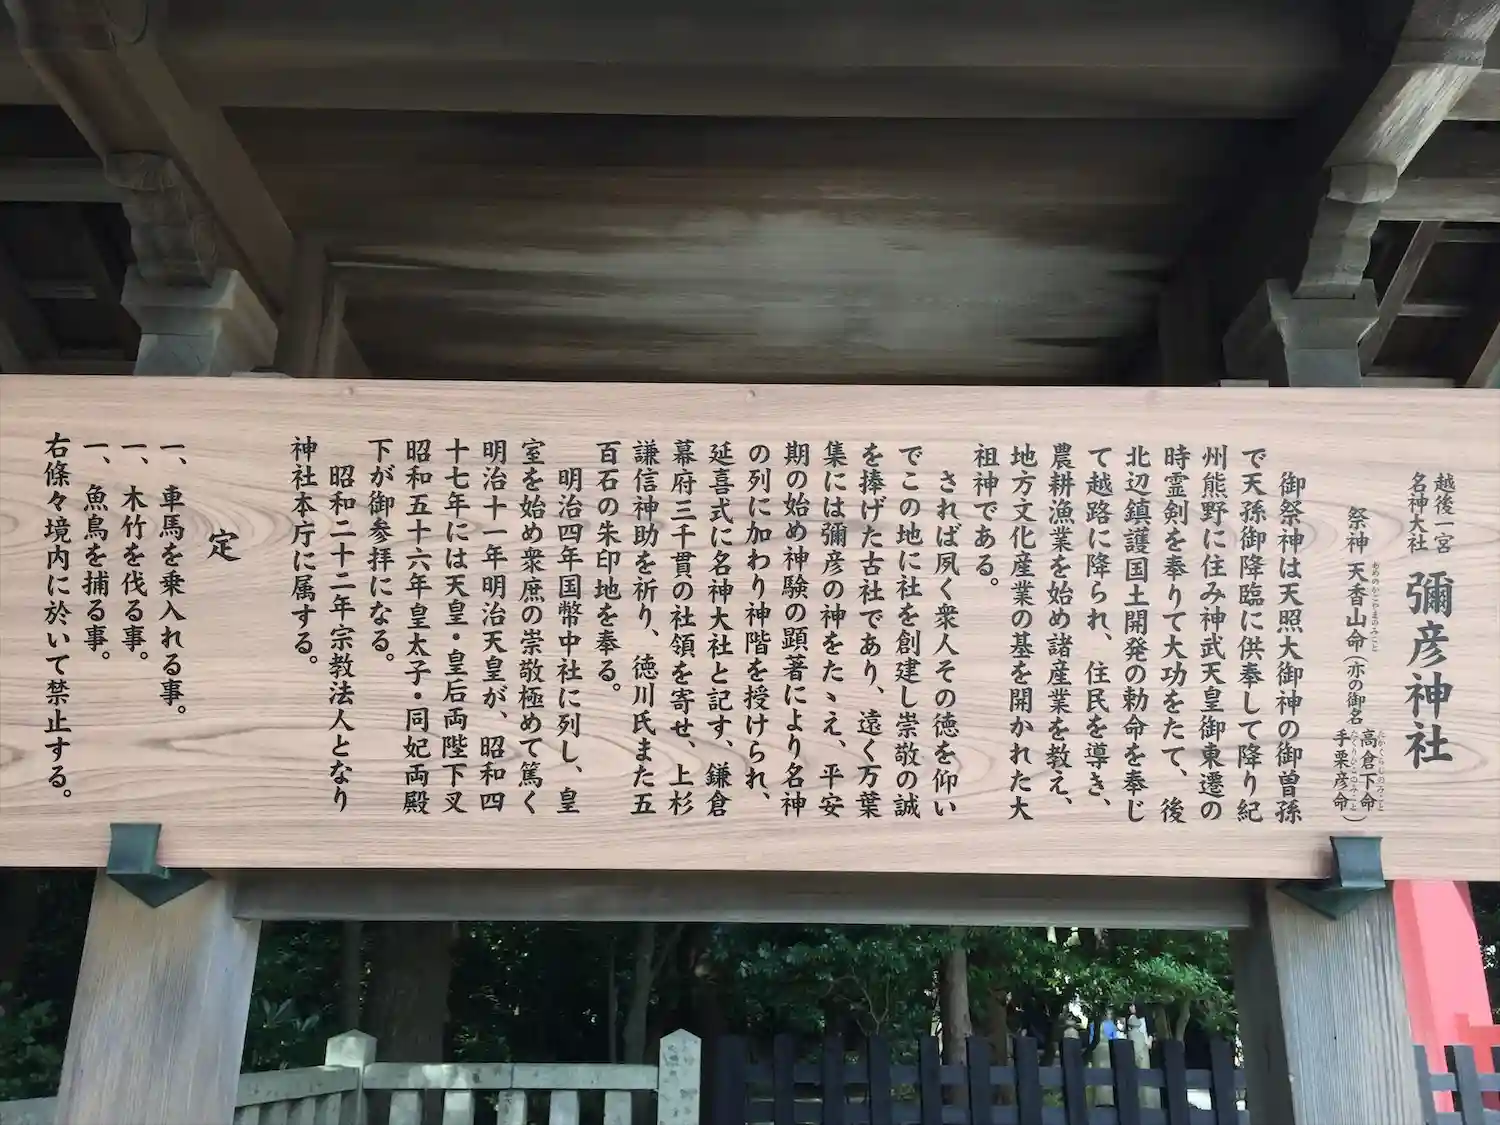 越後一宮
名神大社
彌彦神社
祭神 天香山命(亦の御名 高倉下命
手栗彦命)
あめのかごやまのみこと
たかくらじのみこと
たくりひこのみこと
御祭神は天照大御神の御曽孫
で天孫御降臨に供奉して降り紀
州熊野に住み神武天皇御東遷の
時霊剣を奉りて大功をたて、後
北辺鎮護国土開発の勅命を奉じ
て越路に降られ、住民を導き、
農耕漁業を始め諸産業を教え、
地方文化産業の基を開かれた大
祖神である。
されば夙く衆人その徳を仰い
でこの地に社を創建し崇敬の誠
を捧げた古社であり、遠く万葉
集には彌彦の神をたゝえ、平安
期の始め神験の顕著により名神
の列に加わり神階を授けられ、
延喜式に名神大社と記す、鎌倉
幕府三千貫の社領を寄せ、上杉
謙信神助を祈り、徳川氏また五
百石の朱印地を奉る。
明治四年国幣中社に列し、皇
室を始め衆庶の崇敬極めて篤く
明治十一年明治天皇が、昭和四
十七年には天皇・皇后両陛下又
昭和五十六年皇太子・同妃両殿
下が御参拝になる。
昭和二十二年宗教法人となり
神社本庁に属する。
定
一、車馬を乗入れる事。
一、木竹を伐る事。
一、魚鳥を捕る事。
右條々境内に於いて禁止する。